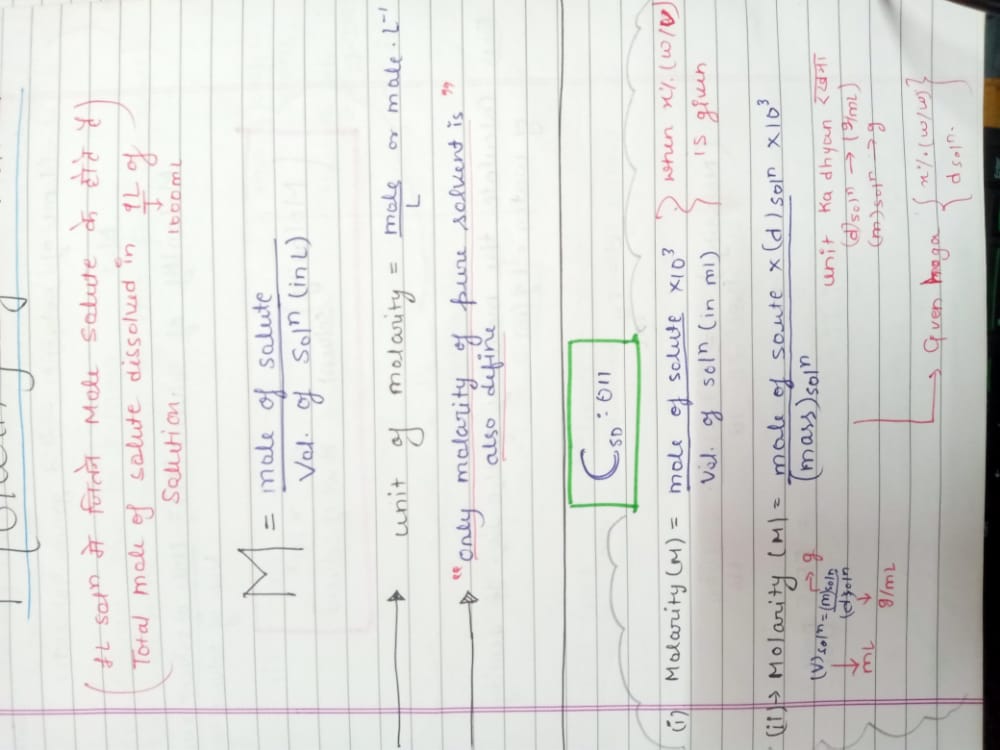 (1L solⁿ में जितने Mole Solute के होते है)
(Total mole of solute dissolved in 1L of
1000ml
Solution.
M = mole of solute
Vol. of Solⁿ (in L)
unit of molarity = mole or mole. L⁻¹
L
"only molarity of pure solvent is"
also define
C SD : 011
(i) Molarity (M) = mole of solute x10³ } when x%. (w/v)
Vol. of solⁿ (in ml) is given
(ii) → Molarity (M) = mole of solute x (d) solⁿ x10³
(mass) solⁿ
(V) solⁿ = (m) solⁿ → g
(d) solⁿ
↓ mL
↓ g/mL
unit ka dhyan रखना
(d) solⁿ → (g/mL)
(m) solⁿ → g
→ Given hoga { x%. (w/w) }
d solⁿ.